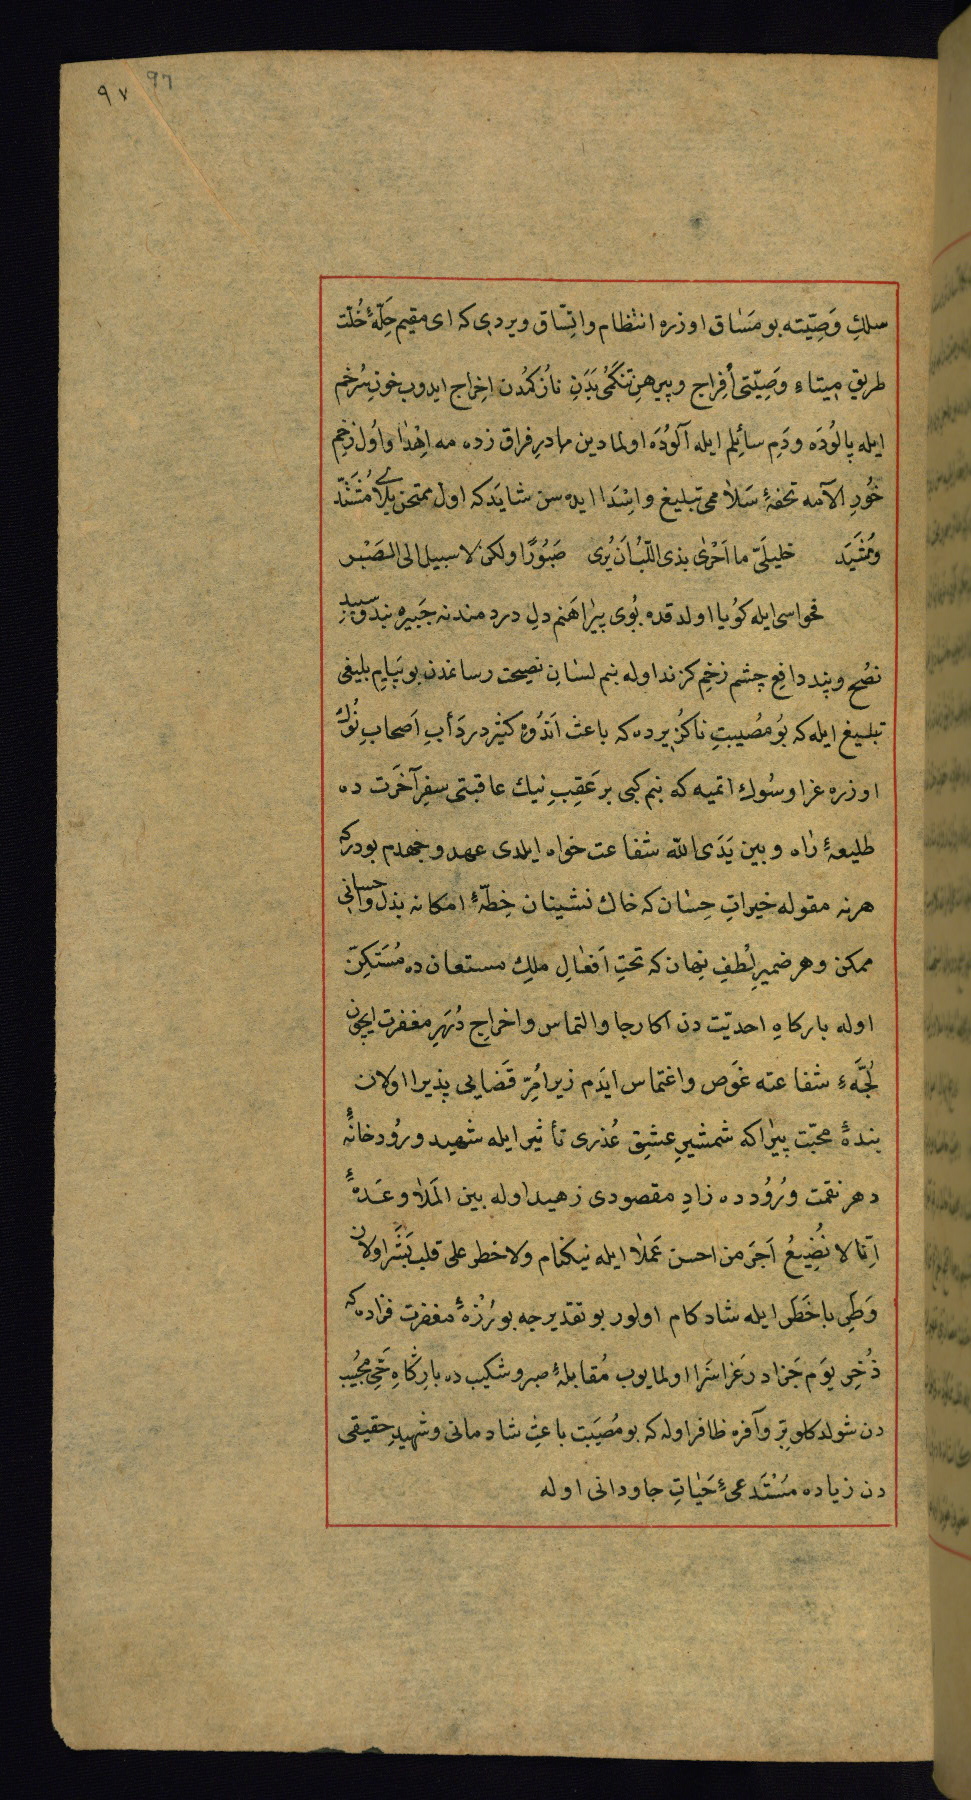 ٩٧ ٩٦
سلكِ وَصِيّتە بو مَسَاق اوزره انتظام واتِّسَاق ويردى كه اى مقيم حِلّۀ خُلّت
طريقِ ميتاء وَصِيّتى أفِراج و پيرهنِ تنكمُ بَدَنِ نازكمدن اخِراج ايدوب خونِ سُرخم
ايله پالوُدَه ودَمِ سائِلم ايله آلوُدَه اولمادين مادرِ فراق زده مه اِهْدا واوُل زخمِ
خُورِ الآمه تحفۀ سَلامى تبليغ واسِْدَا ايده سن شايَد كه اول ممتحن
خليلَىّ ما اَحْرٰى بذى اللّبِ اَنْ يُرى صَبُورًا ولكن لا سبيل الى الصَبْر
فحواسى ايله كوُيا اولدقده بُوى پيراهَنم دلِ دردمندنه جَبيره بند
نصُح وپند دافعِ چشم زخمِ كزند اوله بنم لسَانِ نصيحت رسا ندن بو پَيامِ بليغى
تبليغ ايله كه بُو مُصيبتِ ناكزُيرده كه باعث اَندُوهِ كثيردر دَأبِ اَصحابِ
اوزره عزا وسُوك اتميه كه بنم كبى بر عَقِبِ نيك عاقبتى سفرِ آخَرت ده
طليعۀ رٰاه و بين يَدَى اللّٰه شفاعت خواه ايلدى عهد و جهدم بودركه
هرنه مقوله خيراتِ حِسَان كه خاك نشينان خِطّۀ امكانه بذل واحسانى
ممكن وهر ضميرِ لُطفِ نِهان كه تحتِ اَفعٰالِ ملكِ مستعان ده مُستَكِنّ
اوله باركاهِ احديّت دن اكا رجا والتماس واخراجِ دُرَرِ مغفرت ايچون
لُجَّۀ شفاعته غَوص واغتماس ايدَم زيرا مُرِّ قَضايى پذيرا اولان
بندۀ محبّت پيرا كه شمشيرِ عشق عُذرى تأثير ايله شهيد و رُودخانۀ
دهر نقمت وُرُود ده زادِ مقصودى زهيد اوله بين المَلأ وعَدۀ
اِنّا لا نُضيعُ اَجرَ من احسن عَملاً ايله نيكنام ولا خطر على قلب بَشَر اولان
وَطَرِ باخَطَر ايله شادكام اولور بو تقديرجه بو رُزۀ مغفرت فزاده كه
ذُخرِ يوَم جَزادر عَزا سَزا اولمايوب مُقابلۀ صبر وشكيب ده باركاهِ حَىِّ مُجيب
دن شولد كلو برّ وآفره ظافر اوله كه بو مُصيَبت باعثِ شادمانى وشهيدِ حقيقى
دن زياده مسَتَدعىِٔ حَيٰاتِ جاودانى اوله